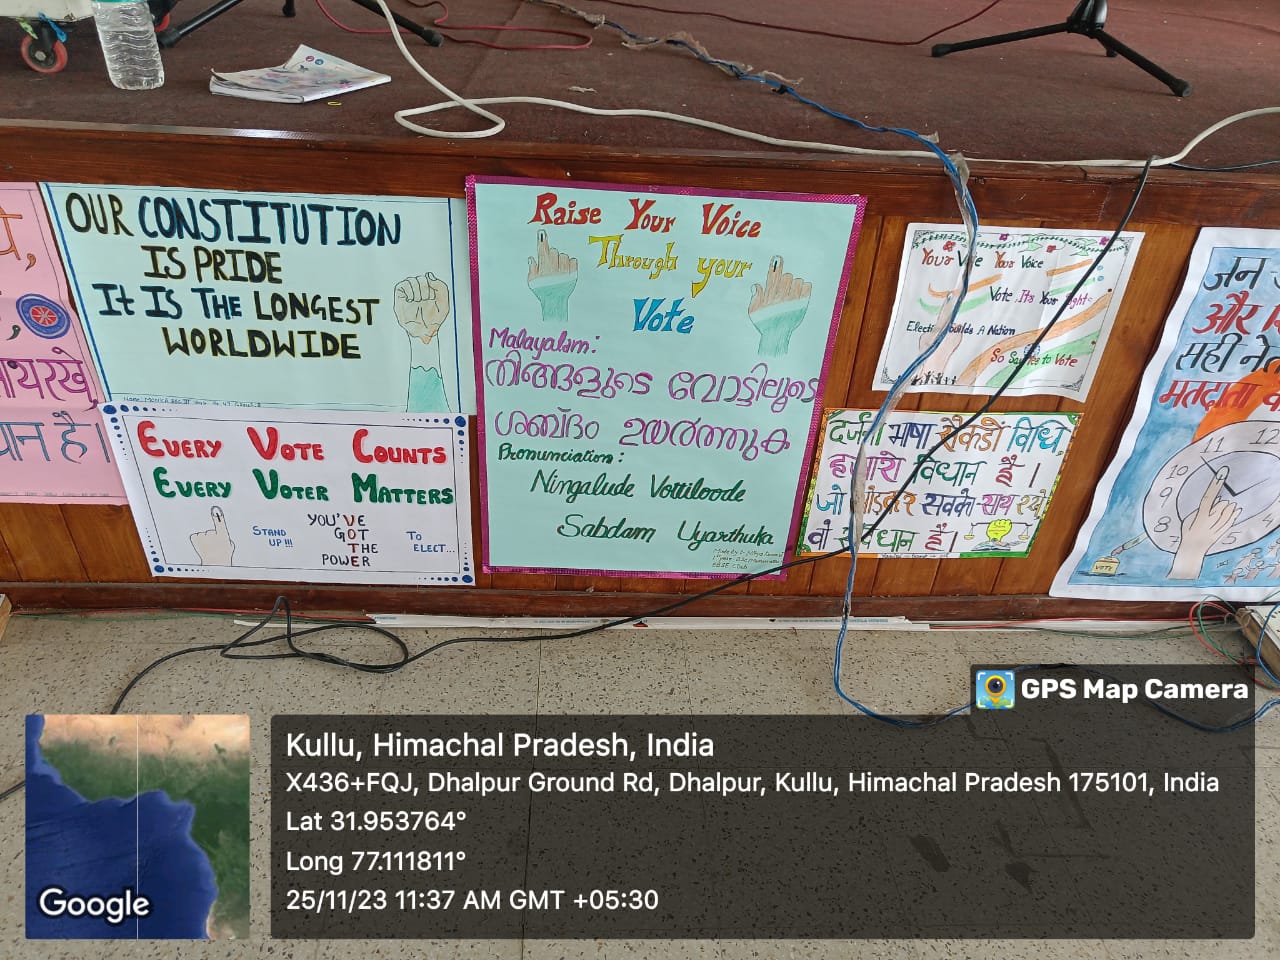 OUR CONSTITUTION
IS PRIDE
It IS THE LONGEST
WORLDWIDE
EVERY VOTE COUNTS
EVERY VOTER MATTERS
STAND
UP!!!
YOU'VE
GOT
THE
POWER
TO
ELECT...
Raise Your Voice
Through your
Vote
Malayalam:
നിങ്ങളുടെ വോട്ടിലൂടെ
ശബ്ദം ഉയർത്തുക
Pronunciation:
Ningalude Vottiloode
Sabdam Uyarthuka
Your Vote Your Voice
Vote Its Your Right
Builds A Nation
So Say Yes to Vote
दर्जनों भाषा सैकडों विधि,
हजारो विधान है।
जो जोड़कर सबको साथ रखे
वो संविधान है।
जन
और
सही
मतदाता
11
12
10
9
8
7
VOTE
है।
GPS Map Camera
Kullu, Himachal Pradesh, India
X436+FQJ, Dhalpur Ground Rd, Dhalpur, Kullu, Himachal Pradesh 175101, India
Lat 31.953764°
Long 77.111811°
25/11/23 11:37 AM GMT +05:30
Google